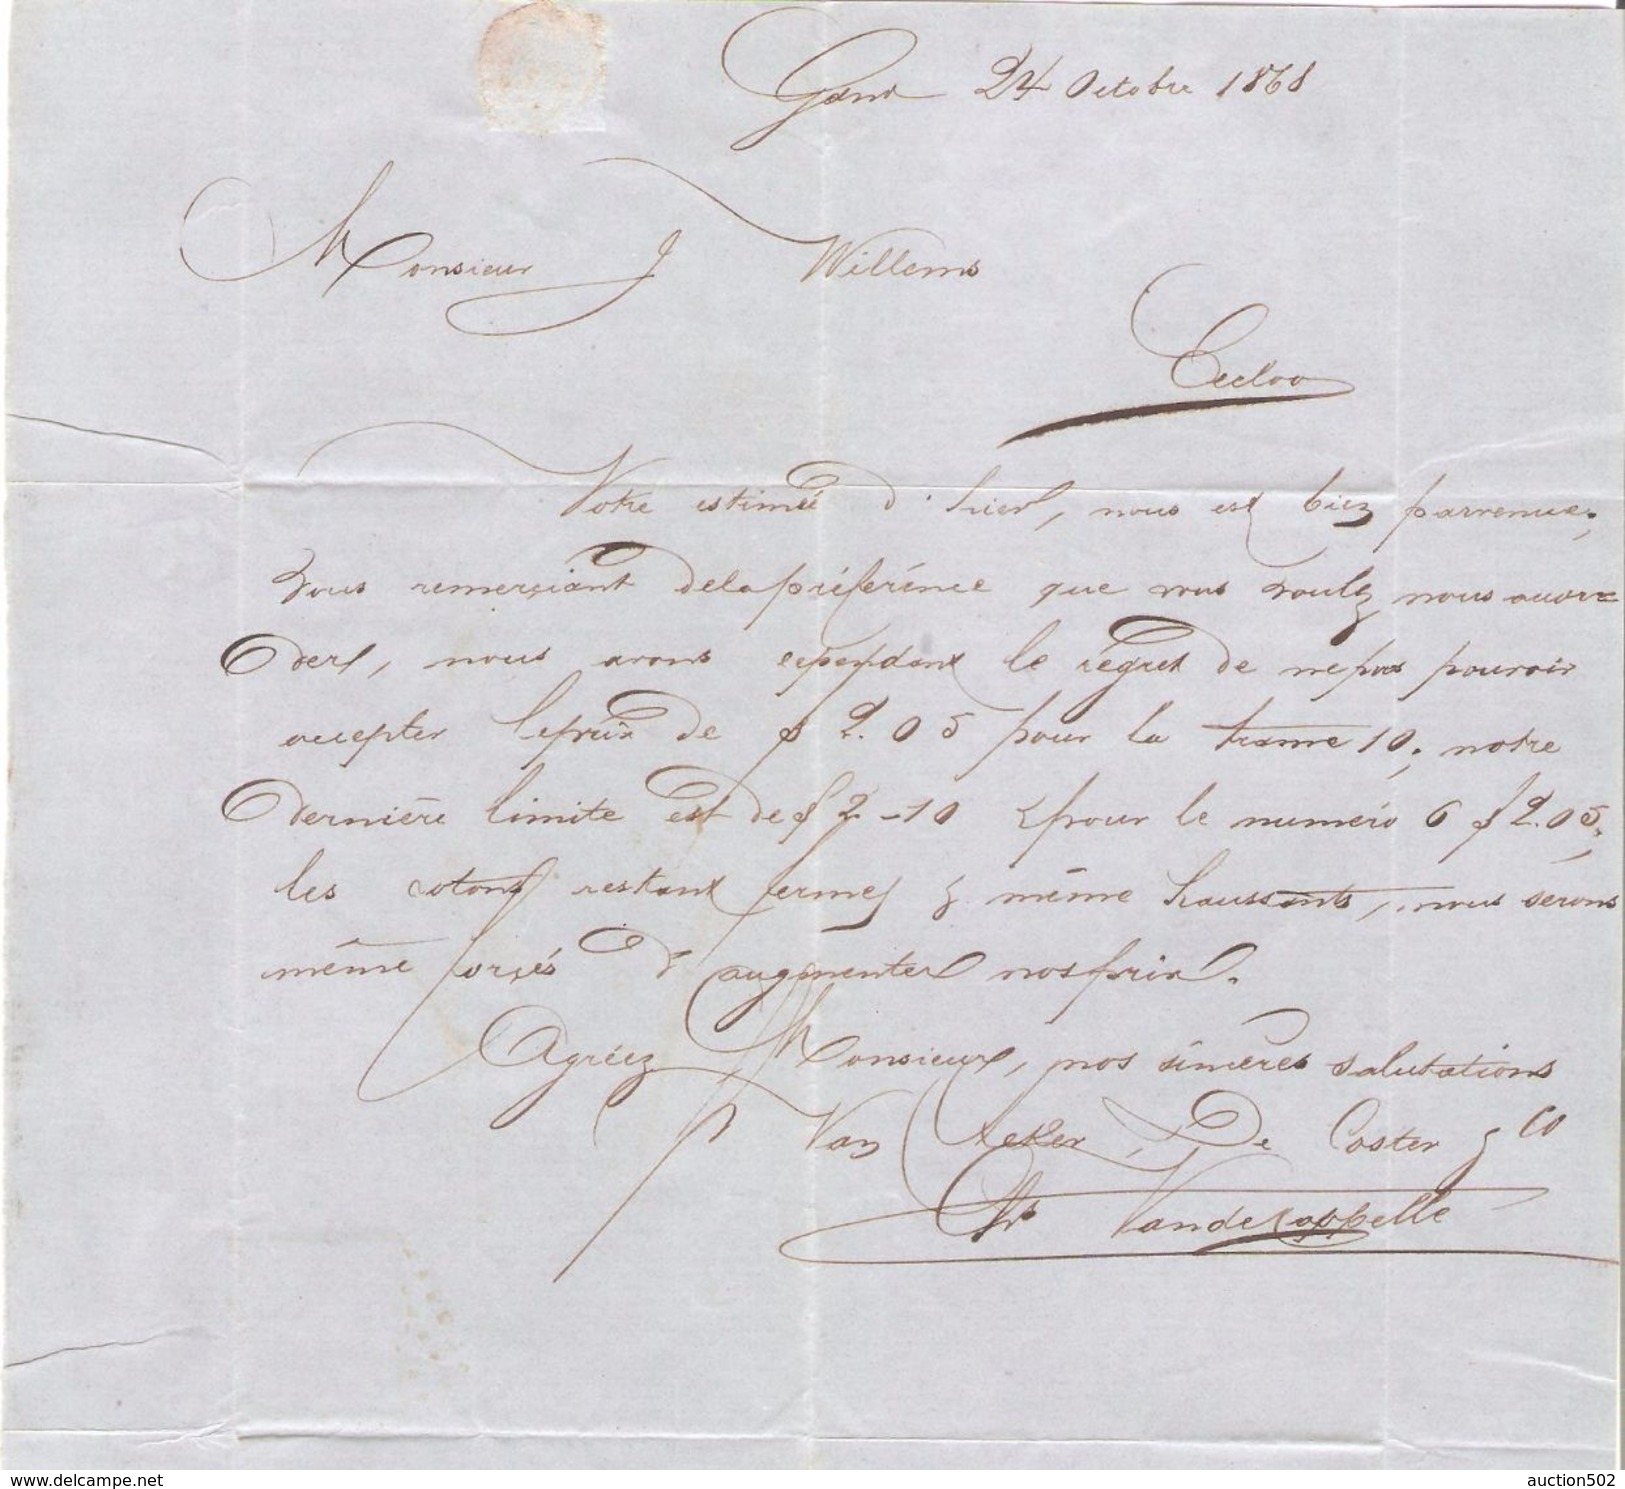 Gand 24 Octobre 1868
Monsieur J Willems
Eecloo
Votre estimée d'hier, nous est bien parvenue;
Vous remerçiant dela préférence que vous voulez nous accor=
der, nous avons cependant le régret de ne pas pouvoir
accepter le prix de f 2.05 pour la trame 10; notre
dernière limite est de f 2-10 & pour le numéro 6 f 2.05;
les cotons restant fermes & même haussants, nous serons
même forçés d'augmenter nos prix.
Agréez Monsieur, nos sincères salutations
Van Acker, De Coster & Co
Vandecappelle
www.delcampe.net
auction502